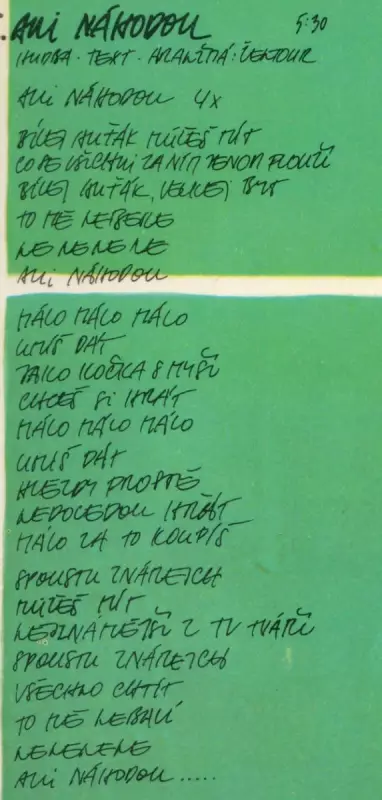 ANI NÁHODOU 5:30
HUDBA · TEXT · ARANŽMÁ: ČENTOUR
ANI NÁHODOU 4x
BÍLEJ AUŤÁK MŮŽEŠ MÍT
CO DE VŠICHNI ZA NÍM JENOM FLOUŠ
BÍLEJ AUŤÁK, VELKEJ BYT
TO MĚ NEBERE
NE NE NE NE
ANI NÁHODOU
MÁLO MÁLO MÁLO
UMÍŠ DÁT
JAKO KOČKA S MYŠÍ
CHCEŠ SI HRÁT
MÁLO MÁLO MÁLO
UMÍŠ DÁT
HVĚZDY PROSTĚ
NEDOVEDOU HŘÁT
MÁLO ZA TO KOUPÍŠ
SPOUSTU ZNÁMEJCH
MŮŽEŠ MÍT
NEJZNÁMĚJŠÍ Z TV TVÁŘÍ
SPOUSTU ZNÁMEJCH
VŠECHNO CHTÍT
TO MĚ NEBAVÍ
NENENENE
ANI NÁHODOU.....